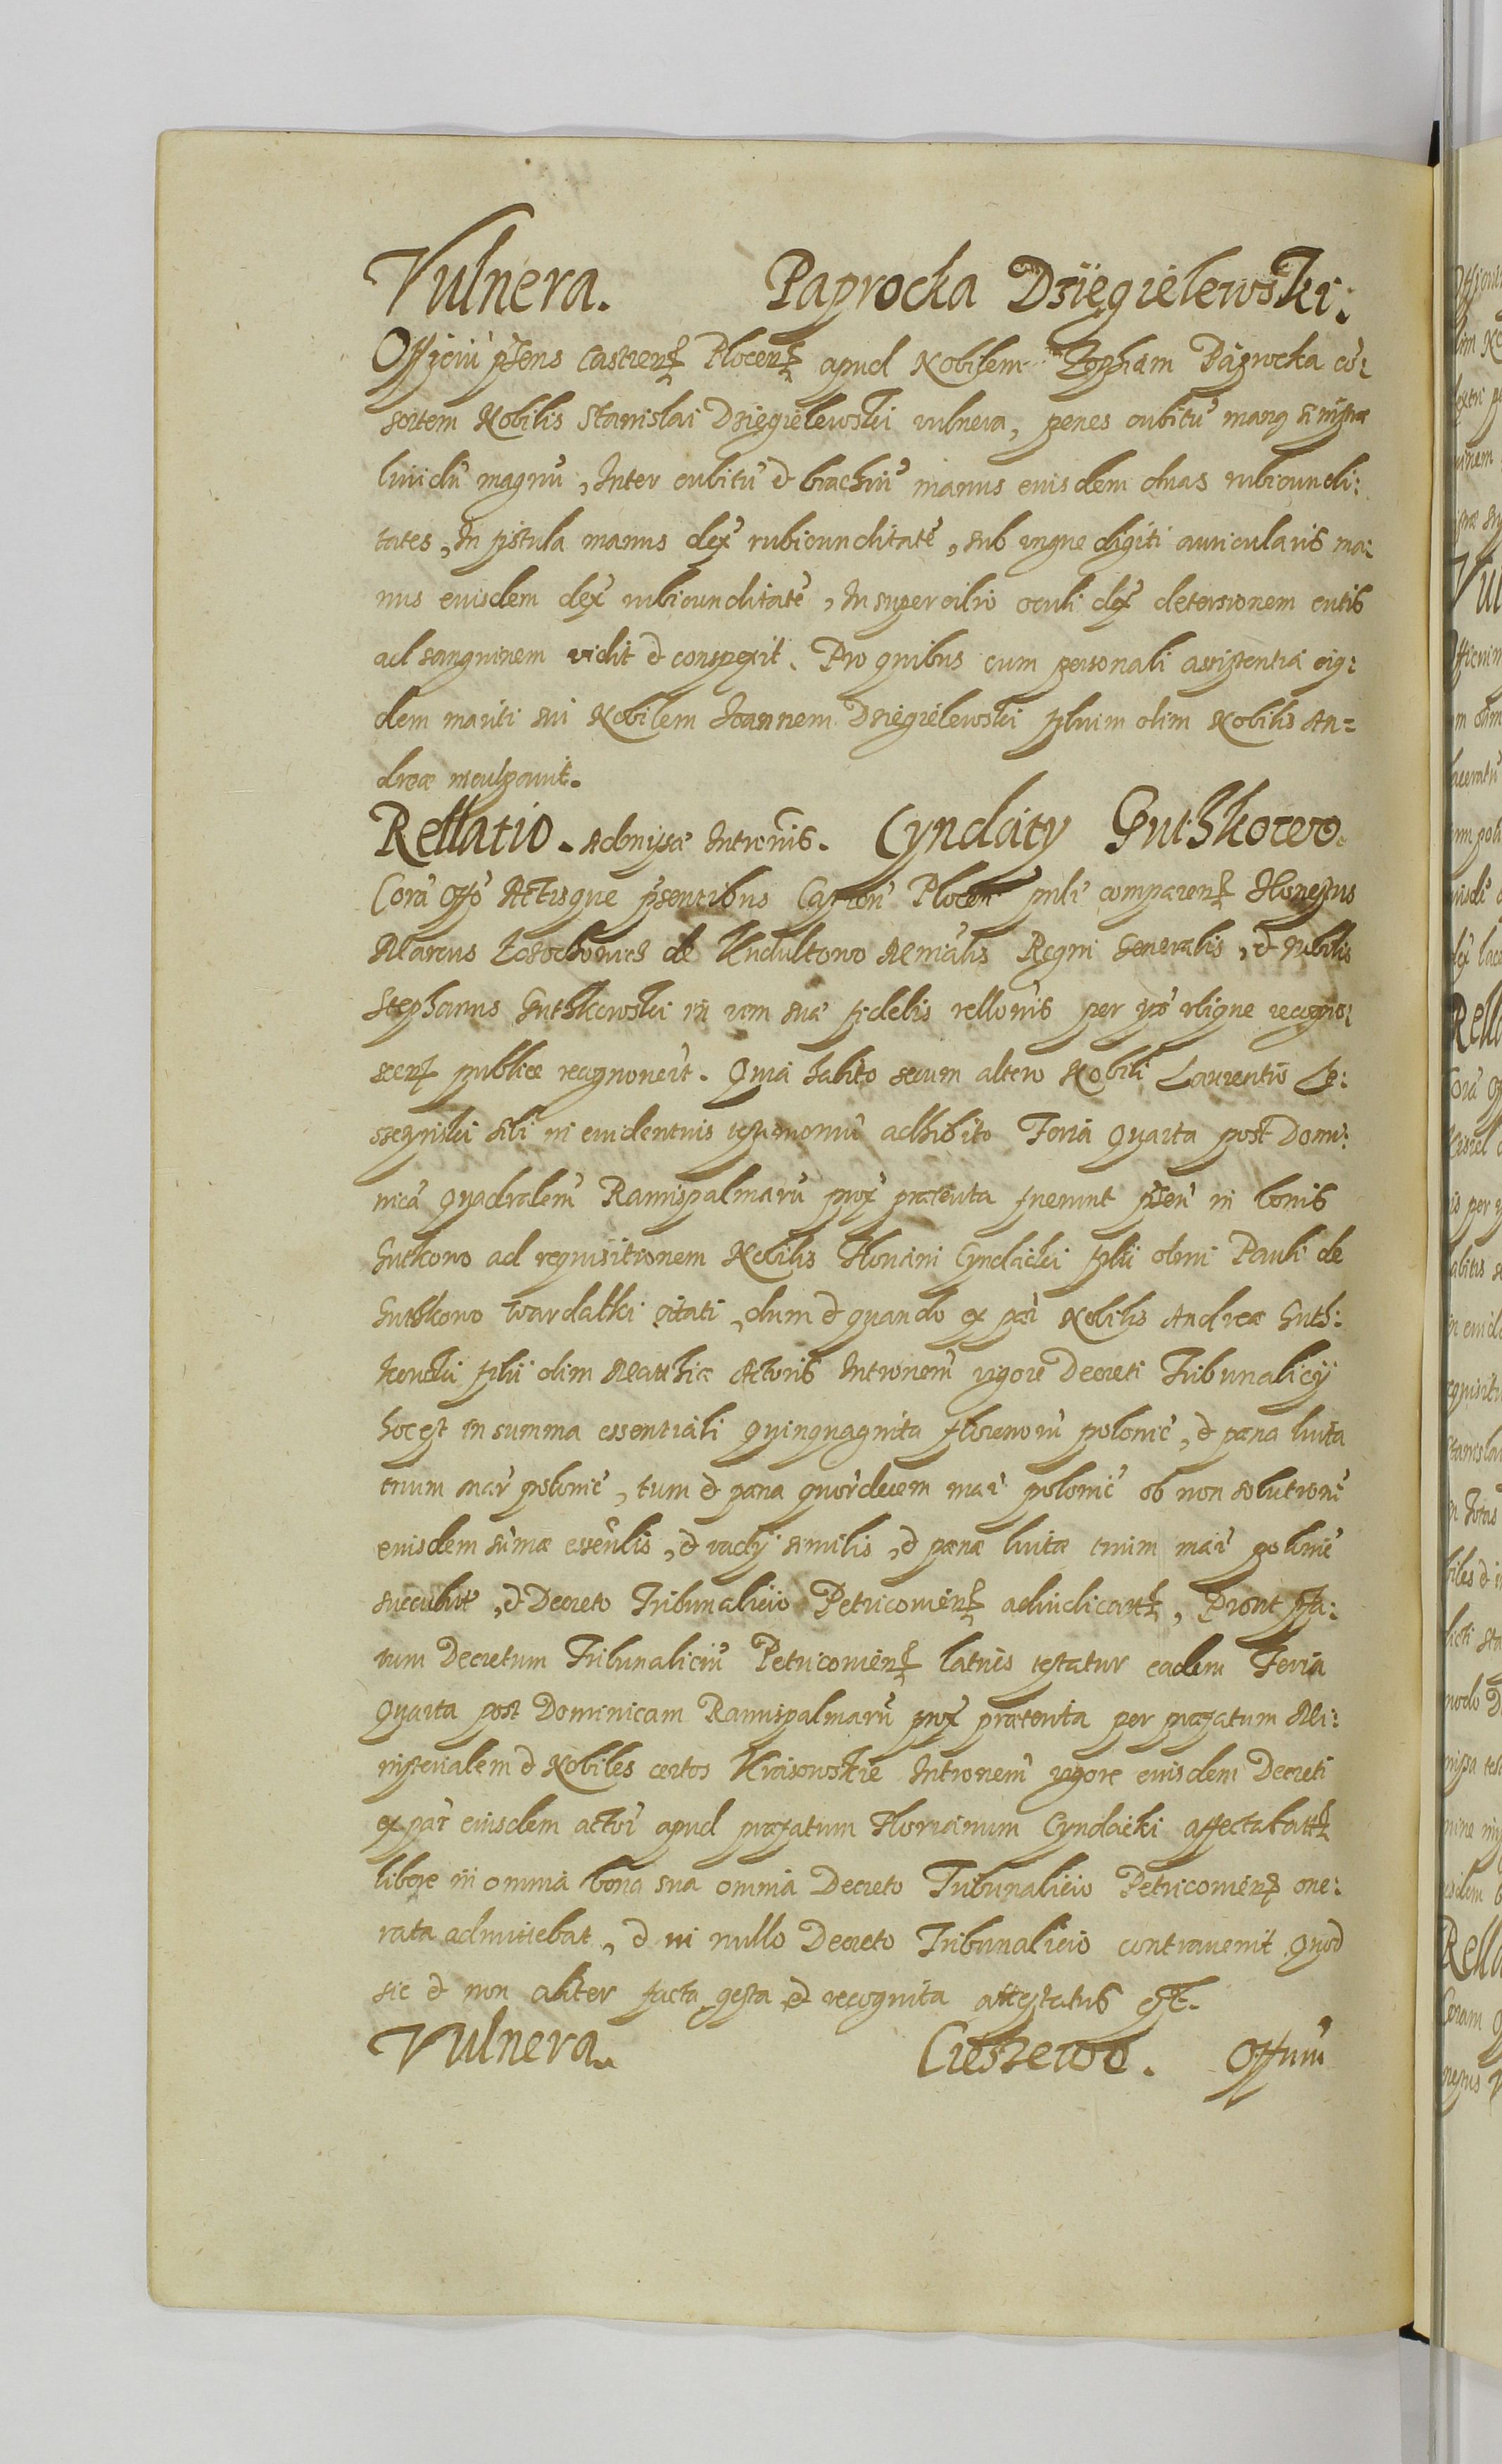 Vulnera. Paprocka Dzięgielewski.
Officiũ pñens Castren Plocen apud Nobilem Zophiam Páprocka cõ:
sortem Nobilis Stanislai Dzięgielewski vulnera, penes cubitũ manus sinistræ
liuidũ magnũ, Inter cubitũ & brachiũ manus euisdem duas rubicundi:
tates, In fistula manus dex̃ rubicunditatẽ, sub ungue digiti auricularis ma:
nus euisdem dex̃ rubicunditatẽ, In supercilio oculi dex̃ detersionem cutis
ad sanguinem vidit & conspexit. Pro quibus cum personali assistentia eius:
dem mariti sui Nobilem Joannem Dzięgielewski filium olim Nobilis An=
dreæ inculpauit.
Rellatio. Admissæ Intromis. Cyndaty Guthkowo.
Corã Offo Actisque pñsentibus Castreñ Ploceñ psñli comparen Honestus
Marcus de Mnrĩalis Regni Generalis, & nobilis
Stephanus Guthkowski in vim suæ fidelis rellõnis per ipsõ recogno:
scen publice recognouert. Quia habito secum altero Nobili Laurentio
sibi in euidentius testimoniũ adhibito Feria Quarta post Domi:
nicã Quadralem̃ Ramispalmarũ prox̃ præterita fuerunt pñseñ in bonis
Gutkowo ad requisitionem Nobilis Floriani Cyndacki filii olim Pauli de
Guthkowo Wardatki citati, dum & quando ex par̃ Nobilis Andreæ Guth:
kowski filii olim Matthiæ Actoris Intronem̃ vigore Decreti Tribunalicij
hoc est in summa essentiali Quinquaginta florenorũ polonic̃, & pæna luita
trium mar̃ polonic̃, tum & pæna quordecem mar̃ polonic̃ ob non solutionẽ
euisdem sũmæ essẽnlis, & vadij similis, & pænæ luitæ trium mar̃ polonic̃
succubit, & Decreto Tribunalicio Petricouien adiudicatt, Prout pfa:
tum Decretum Tribunaliciũ Petricouien latius testatur eadem Feria
Quarta post Dominicam Ramispalmarũ prox̃ præterita per præfatum Mi:
nisterialem & Nobiles certos Intronem̃ vigore euisdem Decreti
ex par̃ euisdem actor̃ apud præfatum Florianum Cyndacki affectabatt
libere in omnia bona sua omnia Decreto Tribunalicio Petricouien one:
rata admittebat, & in nullo Decreto Tribunalicio contrauenit Quod
sic & non aliter facta gesta & recognita attestatus est.
Vulnera. Cieszewo. Offiũ